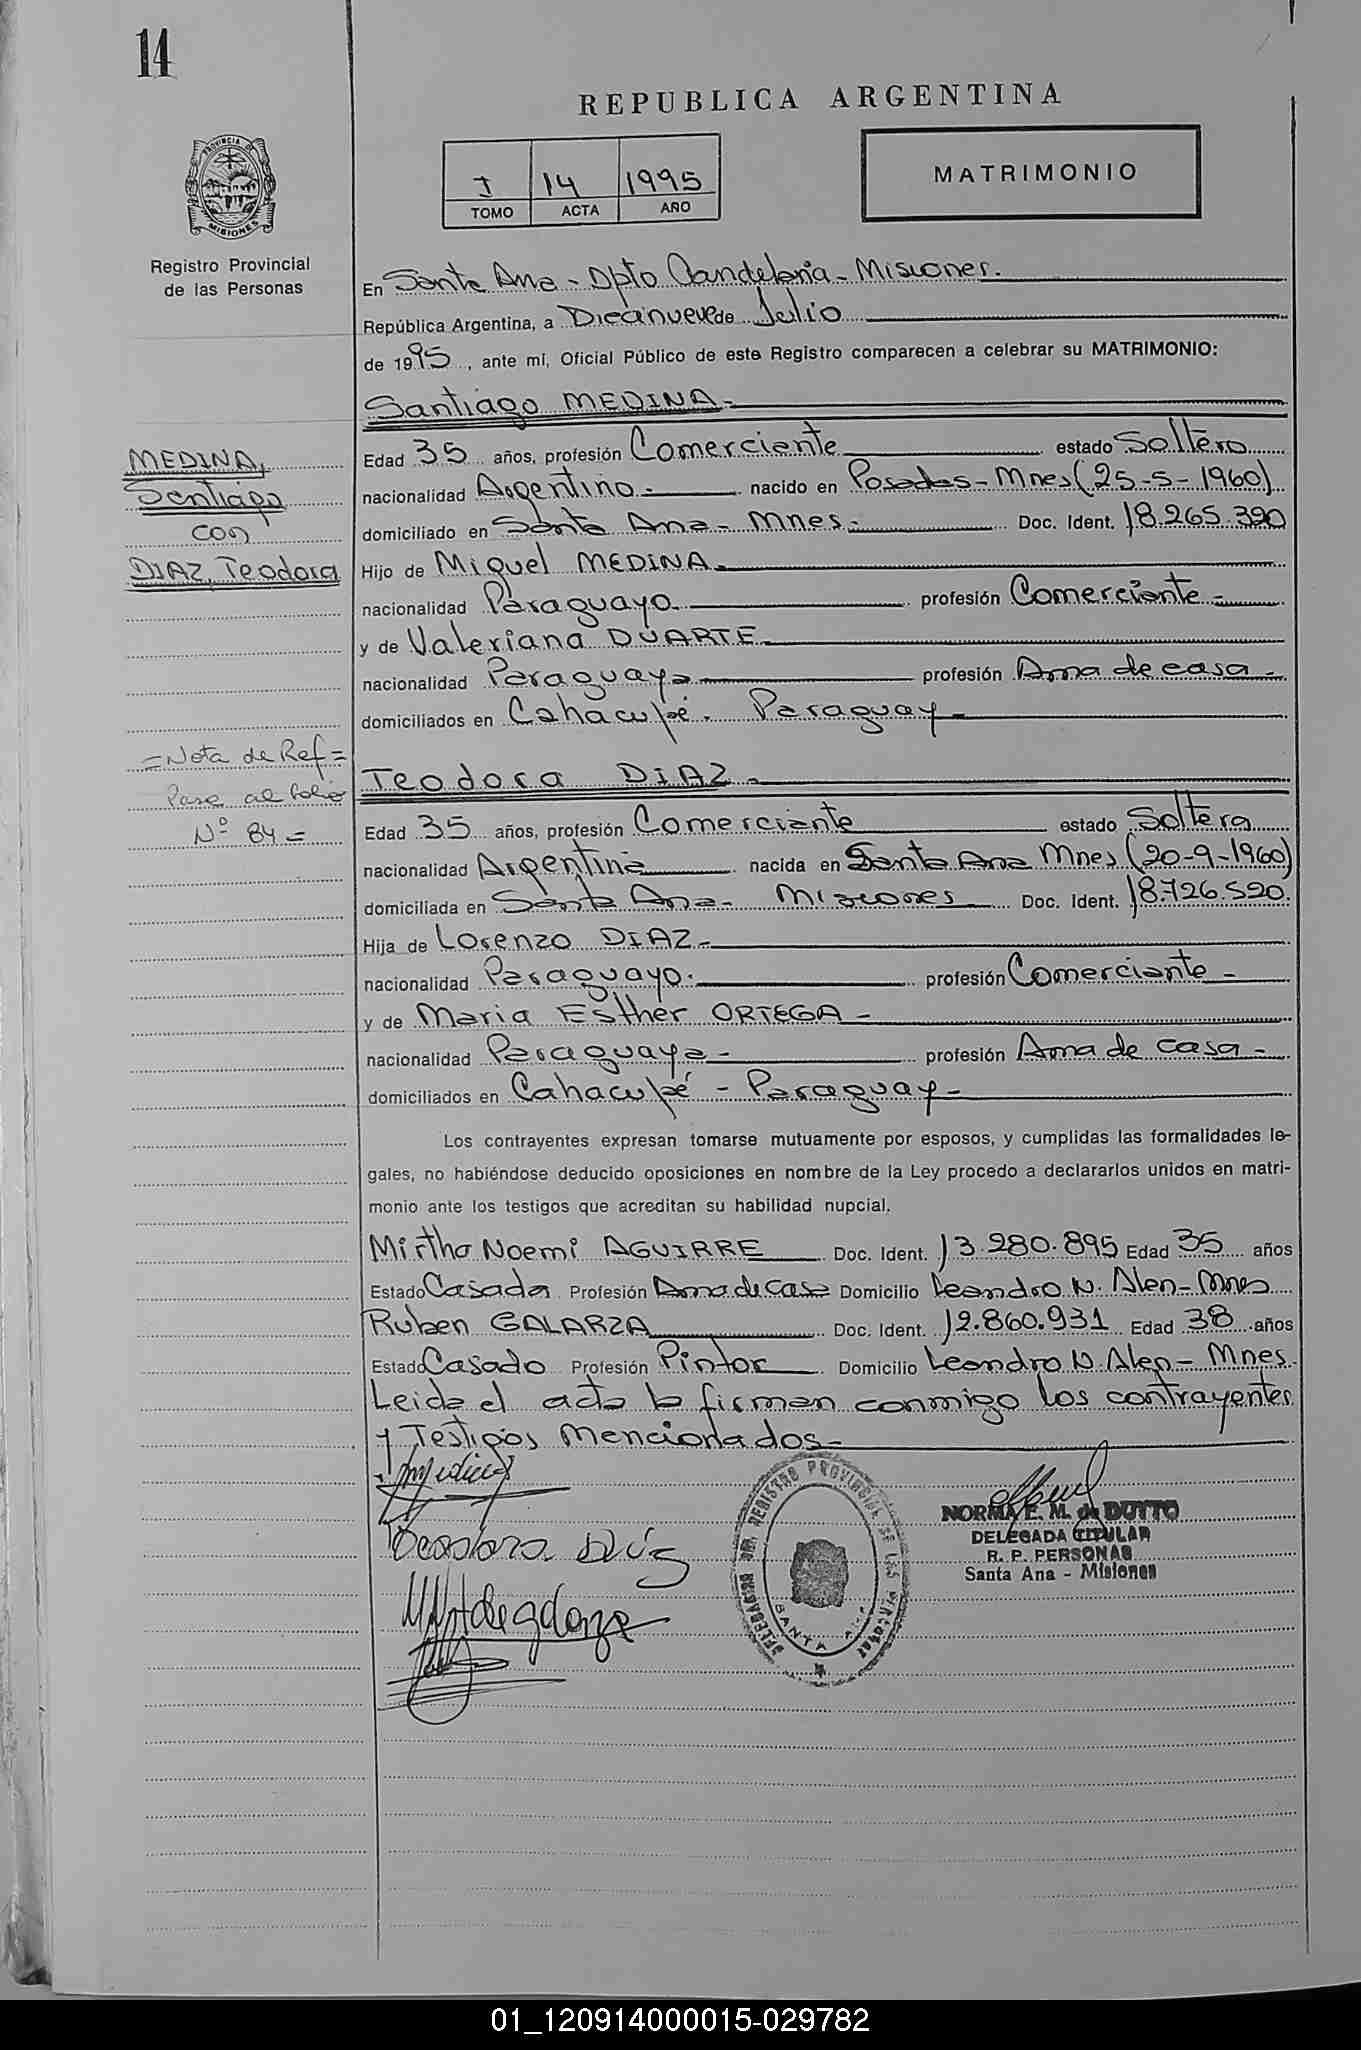 14
REPUBLICA ARGENTINA
PROVINCIA DE
MISIONES
Registro Provincial
de las Personas
I 14 1995
TOMO ACTA AÑO
MATRIMONIO
En Santa Ana - Dpto Candelaria - Misiones.
República Argentina, a Diecinueve de Julio
de 1995, ante mí, Oficial Público de este Registro comparecen a celebrar su MATRIMONIO:
Santiago MEDINA -
MEDINA,
Santiago
con
DIAZ, Teodora
Edad 35 años, profesión Comerciante estado Soltero
nacionalidad Argentino - nacido en Posadas - Mnes (25-5-1960)
domiciliado en Santa Ana - Mnes - Doc. Ident. 18.265.390
Hijo de Miguel MEDINA -
nacionalidad Paraguayo profesión Comerciante -
y de Valeriana DUARTE -
nacionalidad Paraguaya profesión Ama de casa -
domiciliados en Cahacupé. Paraguay -
= Nota de Ref =
Pase al folio
Nº 84 =
Teodora DIAZ -
Edad 35 años, profesión Comerciante estado Soltera
nacionalidad Argentina nacida en Santa Ana Mnes (20-9-1960)
domiciliada en Santa Ana - Misiones Doc. Ident. 18.726.520
Hija de Lorenzo DIAZ -
nacionalidad Paraguayo. profesión Comerciante -
y de Maria Esther ORTEGA -
nacionalidad Paraguaya - profesión Ama de casa -
domiciliados en Cahacupé - Paraguay -
Los contrayentes expresan tomarse mutuamente por esposos, y cumplidas las formalidades le-
gales, no habiéndose deducido oposiciones en nombre de la Ley procedo a declararlos unidos en matri-
monio ante los testigos que acreditan su habilidad nupcial.
Mirtha Noemi AGUIRRE Doc. Ident. 13.280.895 Edad 35 años
Estado Casada Profesión Ama de casa Domicilio Leandro N. Alen - Mnes
Ruben GALARZA Doc. Ident. 12.860.931 Edad 38 años
Estado Casado Profesión Pintor Domicilio Leandro N. Alen - Mnes.
Leida el acta la firman conmigo los contrayentes
y Testigos mencionados -
Teodora Diaz
NORMA E. M. de DUTTO
DELEGADA TITULAR
R. P. PERSONAS
Santa Ana - Misiones
DELEGACION DEL REGISTRO PROVINCIAL DE LAS PERSONAS
SANTA ANA
01_120914000015-029782